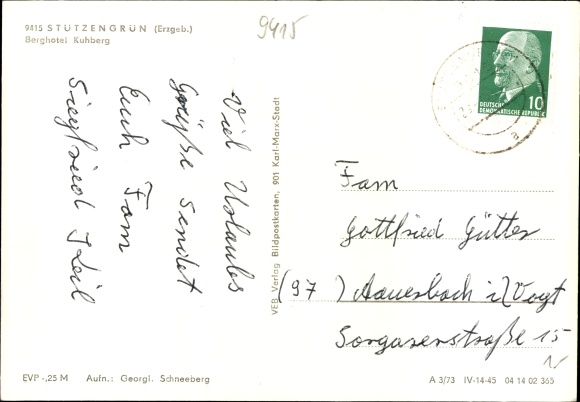 9415 STÜTZENGRÜN (Erzgeb.)
Berghotel Kuhberg
9415
Viel Urlaubs
Grüße sendet
Euch Fam
Siegfried Keil
VEB Verlag Bildpostkarten, 901 Karl-Marx-Stadt
10
DEUTSCHE
DEMOKRATISCHE REPUBLIK
a
Fam
Gottfried Gütter
(97 ) Auerbach i/Vogt
Sorgaerstraße 15
EVP -,25 M Aufn.: Georgi, Schneeberg
A 3/73 IV-14-45 04 14 02 365